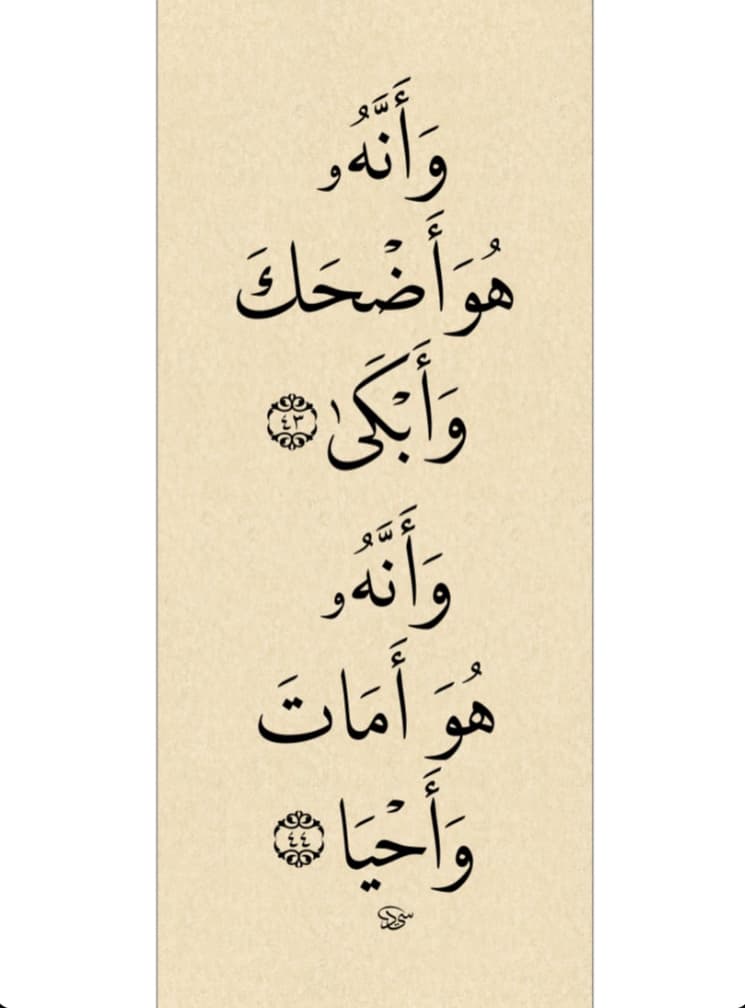 وَأَنَّهُۥ
هُوَ أَضْحَكَ
وَأَبْكَىٰ ٤٣
وَأَنَّهُۥ
هُوَ أَمَاتَ
وَأَحْيَا ٤٤